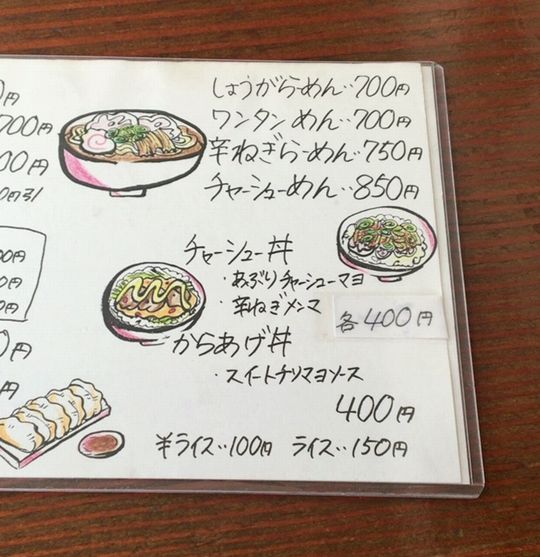 しょうがらーめん‥700円
ワンタンめん‥700円
辛ねぎらーめん‥750円
チャーシューめん‥850円
0円
700円
00円
0円引
00円
0円
0円
0円
円
チャーシュー丼
・あぶりチャーシューマヨ
・辛ねぎメンマ
各400円
からあげ丼
・スイートチリマヨソース
400円
半ライス‥100円 ライス‥150円